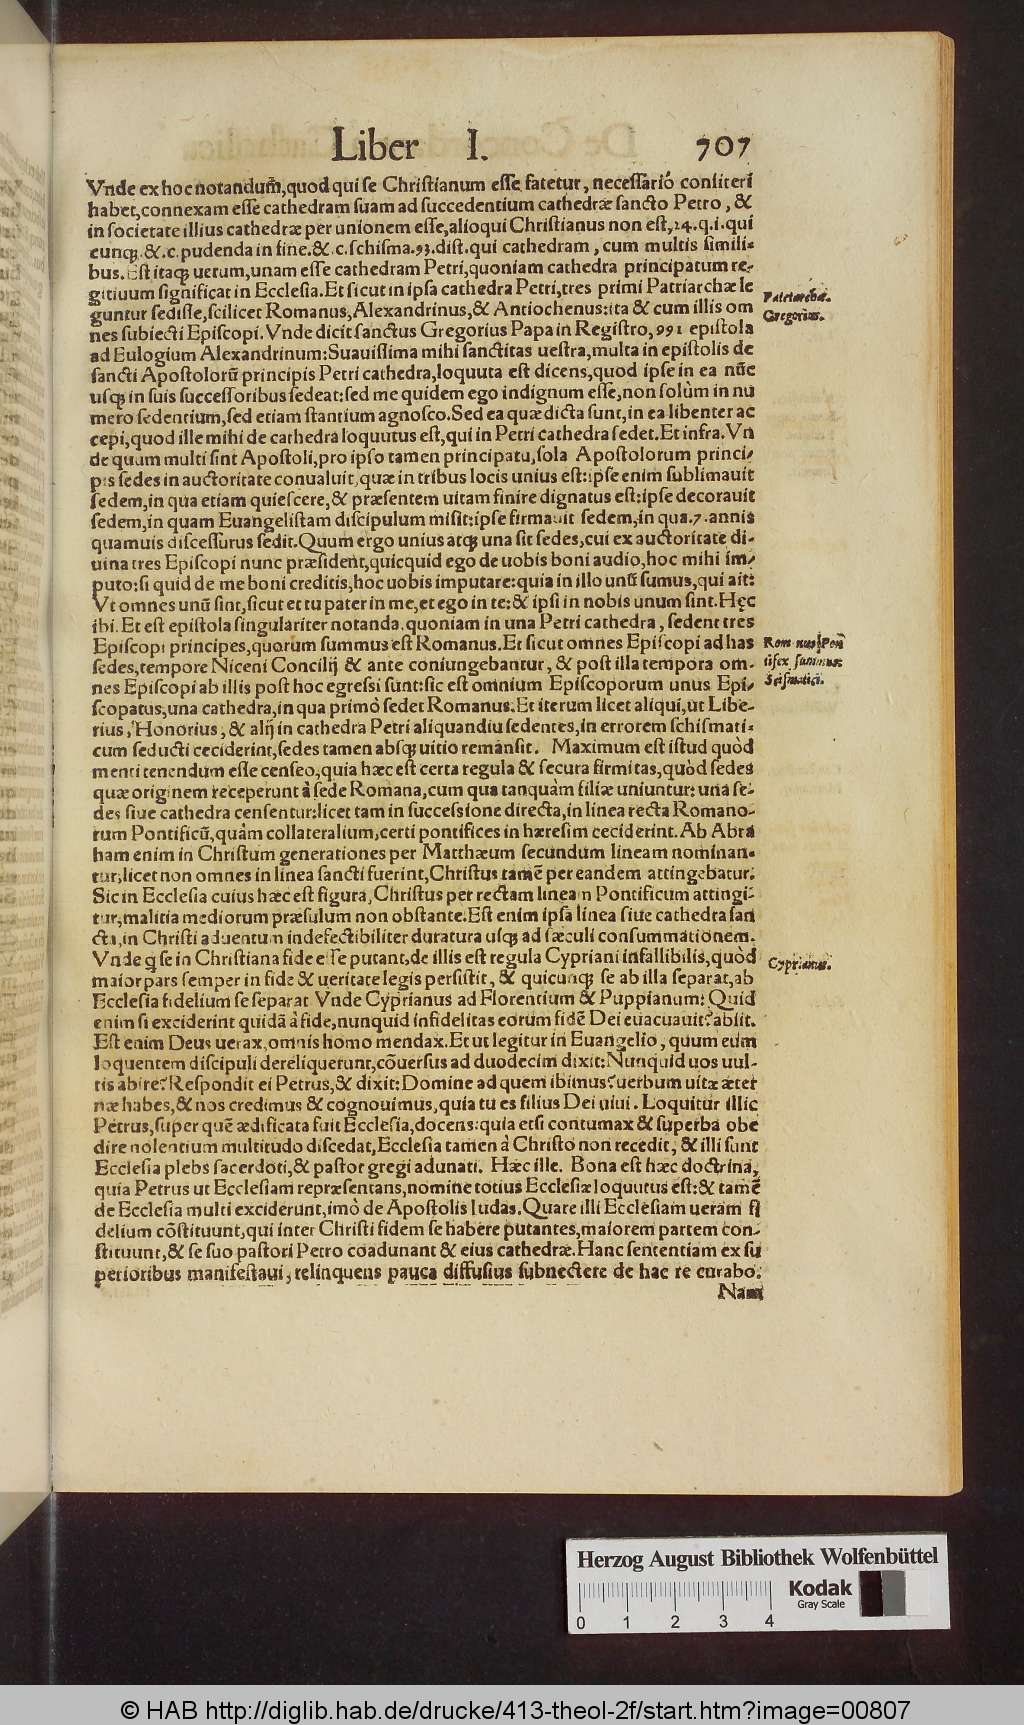 Liber I. 707
Vnde ex hoc notandum̃, quod qui se Christianum esse fatetur, necessariò confiteri
habet, connexam esse cathedram suam ad succedentium cathedræ sancto Petro, &
in societate illius cathedræ per unionem esse, alioqui Christianus non est, 24.q.i. qui
cunqꝫ. &.c. pudenda in fine. &.c. schisma. 93. dist. qui cathedram, cum multis simili-
bus. Est itaqꝫ uerum, unam esse cathedram Petri, quoniam cathedra principatum re-
gitiuum significat in Ecclesia. Et sicut in ipsa cathedra Petri, tres primi Patriarchæ le
guntur sedisse, scilicet Romanus, Alexandrinus, & Antiochenus: ita & cum illis om
nes subiecti Episcopi. Vnde dicit sanctus Gregorius Papa in Registro, 991 epistola
ad Eulogium Alexandrinum: Suauissima mihi sanctitas uestra, multa in epistolis de
sancti Apostolorũ principis Petri cathedra, loquuta est dicens, quod ipse in ea nũc
usqꝫ in suis successoribus sedeat: sed me quidem ego indignum esse, non solùm in nu
mero sedentium, sed etiam stantium agnosco. Sed ea quæ dicta sunt, in ea libenter ac
cepi, quod ille mihi de cathedra loquutus est, qui in Petri cathedra sedet. Et infra. Vn
de quàm multi sint Apostoli, pro ipso tamen principatu, sola Apostolorum princi-
pis sedes in auctoritate conualuit, quæ in tribus locis unius est: ipse enim sublimauit
sedem, in qua etiam quiescere, & præsentem uitam finire dignatus est: ipse decorauit
sedem, in quam Euangelistam discipulum misit: ipse firmauit sedem, in qua. 7. annis
quamuis discessurus sedit. Quum ergo unius atqꝫ una sit sedes, cui ex auctoritate di-
uina tres Episcopi nunc præsident, quicquid ego de uobis boni audio, hoc mihi im-
puto: si quid de me boni creditis, hoc uobis imputare: quia in illo unũ sumus, qui ait:
Vt omnes unũ sint, sicut et tu pater in me, et ego in te: & ipsi in nobis unum sint. Hęc
ibi. Et est epistola singulariter notanda. quoniam in una Petri cathedra, sedent tres
Episcopi principes, quorum summus est Romanus. Et sicut omnes Episcopi ad has
sedes, tempore Niceni Concilij & ante coniungebantur, & post illa tempora om-
nes Episcopi ab illis post hoc egressi sunt: sic est omnium Episcoporum unus Epi-
scopatus, una cathedra, in qua primò sedet Romanus. Et iterum licet aliqui, ut Libe-
rius, Honorius, & alij in cathedra Petri aliquandiu sedentes, in errorem schismati-
cum seducti ceciderint, sedes tamen absqꝫ uitio remansit. Maximum est istud quòd
menti tenendum esse censeo, quia hæc est certa regula & secura firmitas, quòd sedes
quæ originem receperunt à sede Romana, cum qua tanquàm filiæ uniuntur: una se-
des siue cathedra censentur: licet tam in successione directa, in linea recta Romano-
rum Pontificũ, quàm collateralium, certi pontifices in hæresim ceciderint. Ab Abra
ham enim in Christum generationes per Matthæum secundum lineam nominan-
tur, licet non omnes in linea sancti fuerint, Christus tamẽ per eandem attingebatur:
Sic in Ecclesia cuius hæc est figura, Christus per rectam lineam Pontificum attingi-
tur, malitia mediorum præsulum non obstante. Est enim ipsa linea siue cathedra san
cta, in Christi aduentum indefectibiliter duratura usqꝫ ad sæculi consummationem.
Vnde q̃ se in Christiana fide esse putant, de illis est regula Cypriani infallibilis, quòd
maior pars semper in fide & ueritate legis persistit, & quicunqꝫ se ab illa separat, ab
Ecclesia fidelium se separat Vnde Cyprianus ad Florentium & Puppianum: Quid
enim si exciderint quidã à fide, nunquid infidelitas eorum fidẽ Dei euacuauit? absit.
Est enim Deus uerax, omnis homo mendax. Et ut legitur in Euangelio, quum eum
loquentem discipuli dereliquerunt, cõuersus ad duodecim dixit: Nunquid uos uul-
tis abire? Respondit ei Petrus, & dixit: Domine ad quem ibimus? uerbum uitæ æter
næ habes, & nos credimus & cognouimus, quia tu es filius Dei uiui. Loquitur illic
Petrus, super quẽ ædificata fuit Ecclesia, docens: quia etsi contumax & superba obe
dire nolentium multitudo discedat, Ecclesia tamen à Christo non recedit, & illi sunt
Ecclesia plebs sacerdoti, & pastor gregi adunati. Hæc ille. Bona est hæc doctrina,
quia Petrus ut Ecclesiam repræsentans, nomine totius Ecclesiæ loquutus est: & tamẽ
de Ecclesia multi exciderunt, imò de Apostolis Iudas. Quare illi Ecclesiam ueram fi
delium cõstituunt, qui inter Christi fidem se habere putantes, maiorem partem con-
stituunt, & se suo pastori Petro coadunant & eius cathedræ. Hanc sententiam ex su
perioribus manifestaui, relinquens pauca diffusius subnectere de hac re curabo.
Nam
Patriarchæ.
Gregorius.
Romanus Pon
tifex summus.
Scismatici.
Cyprianus.
Herzog August Bibliothek Wolfenbüttel
Kodak
Gray Scale
0 1 2 3 4
© HAB http://diglib.hab.de/drucke/413-theol-2f/start.htm?image=00807